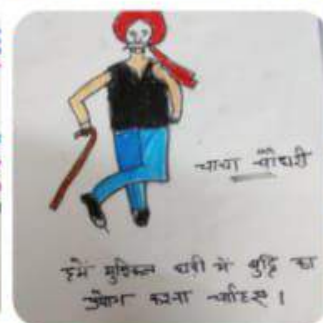 चाचा चौधरी
हमें मुश्किल घड़ी में बुद्धि का
प्रयोग करना चाहिए ।